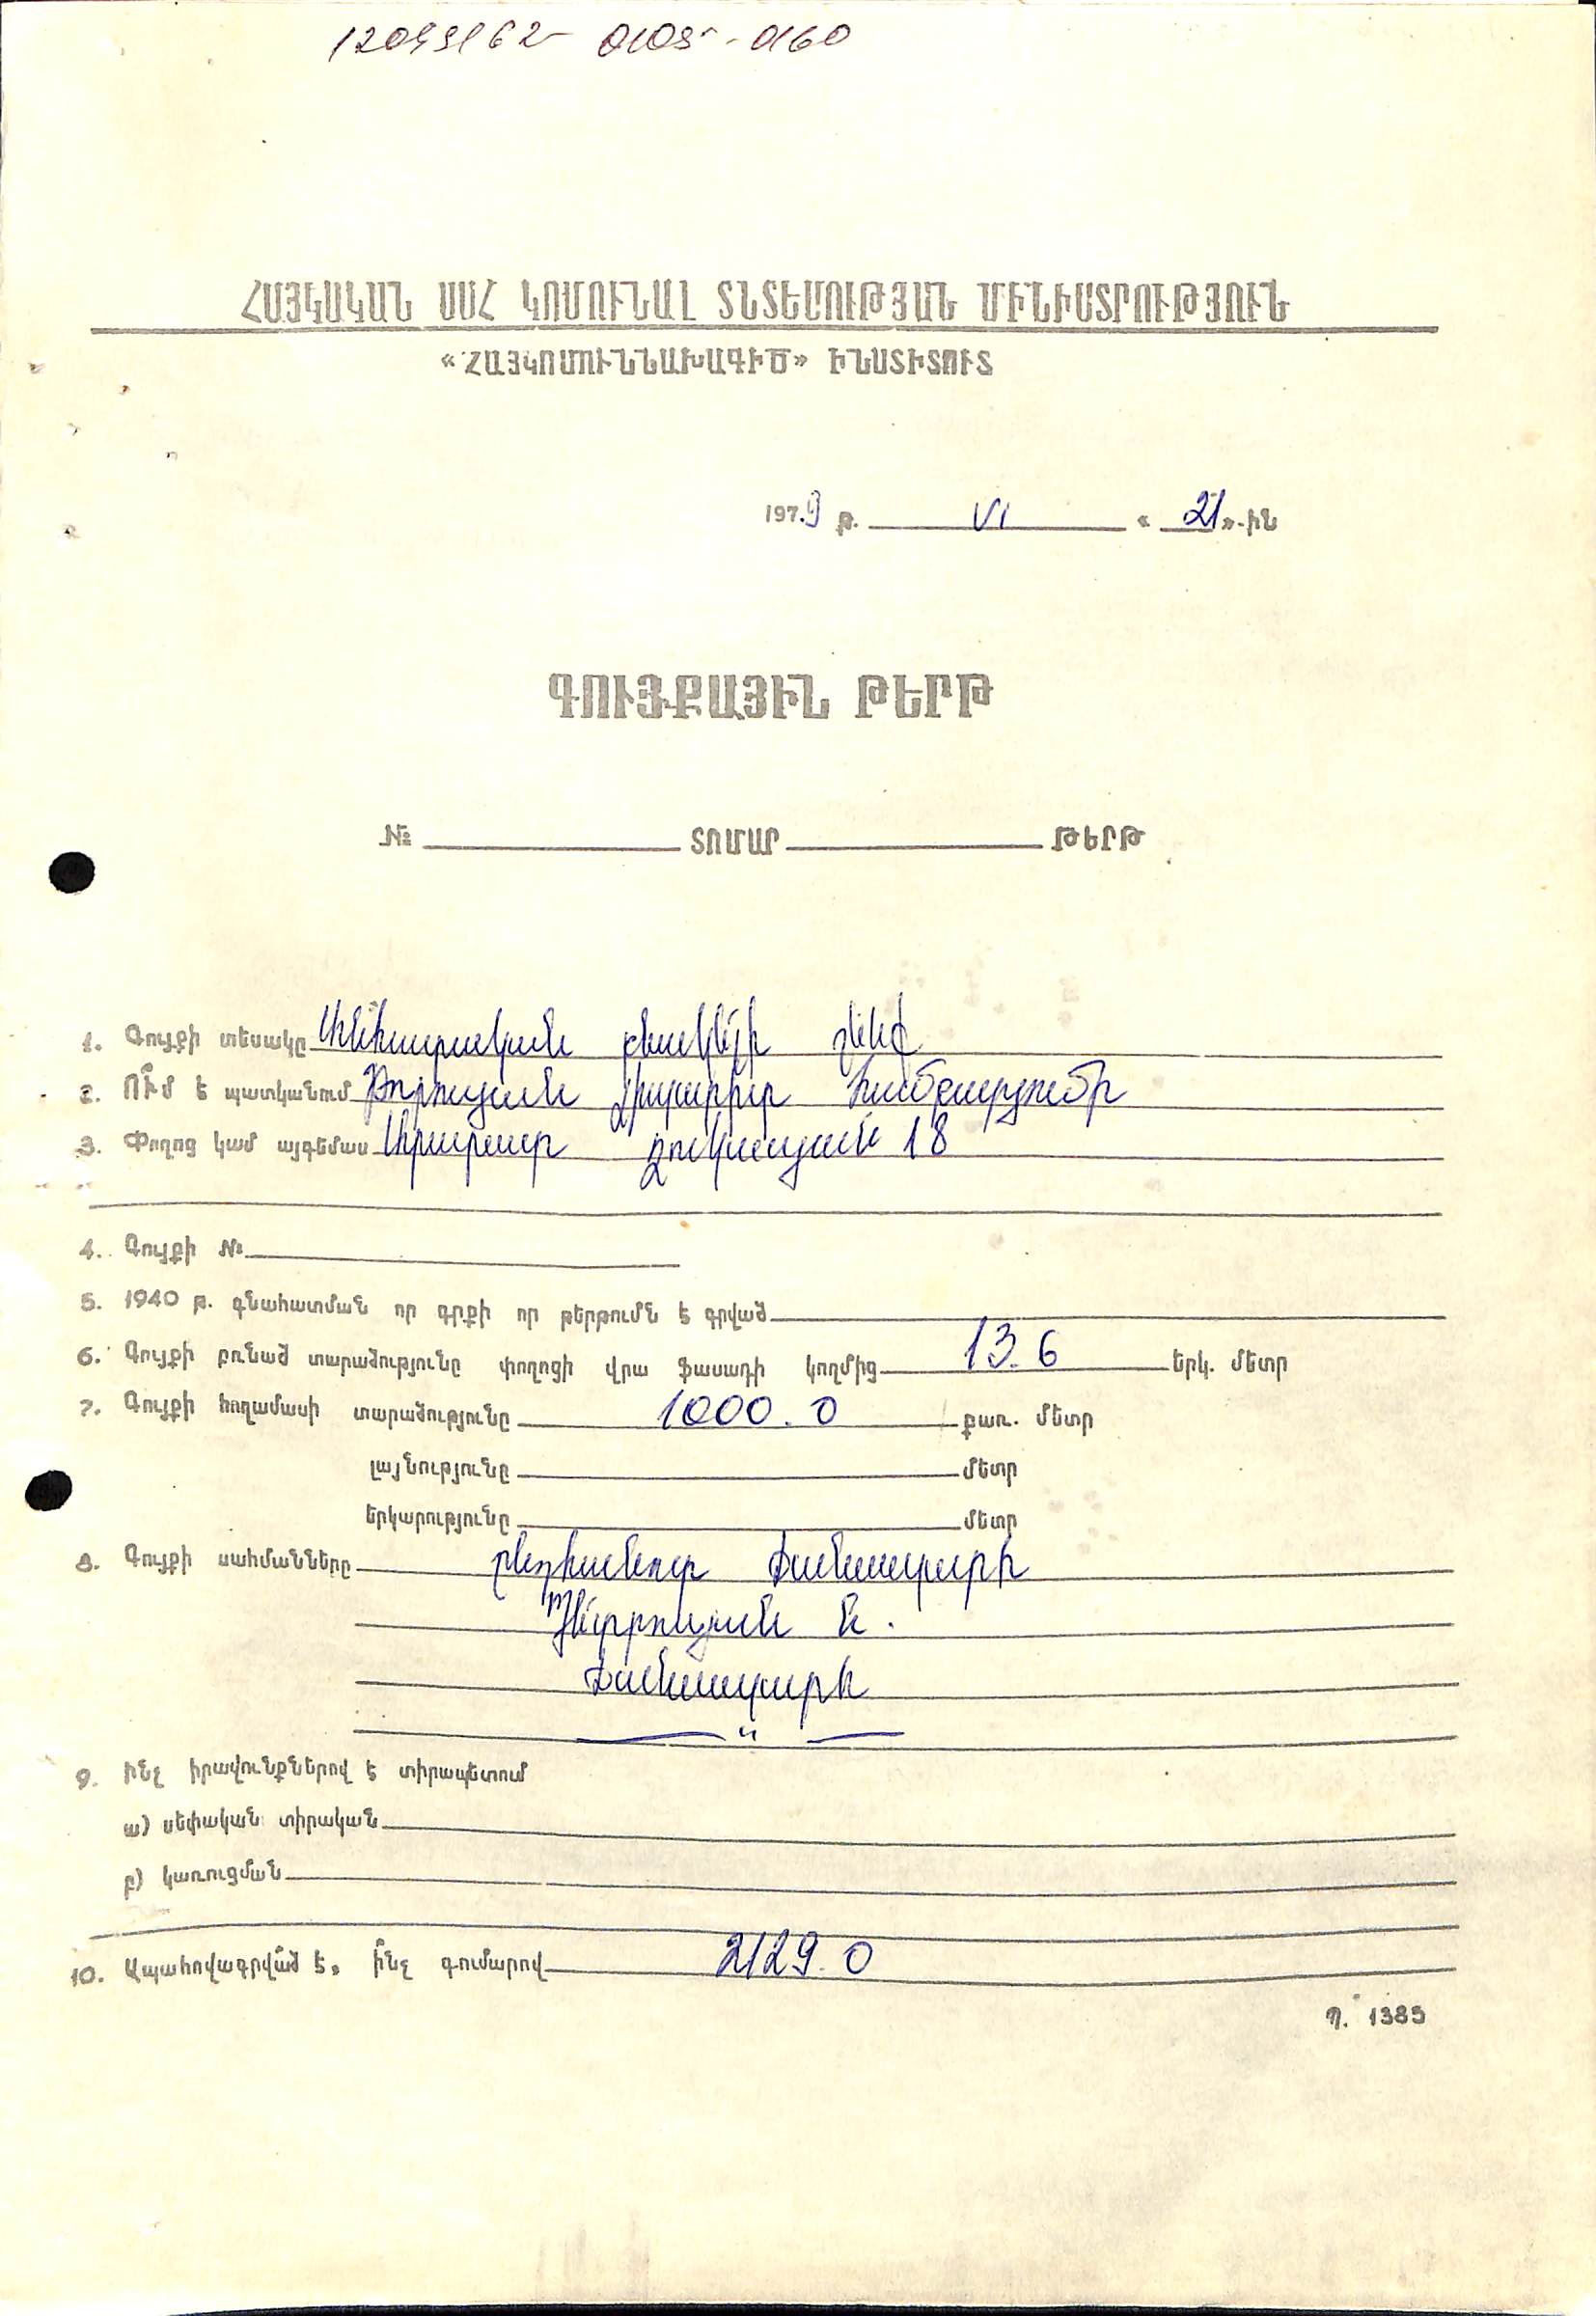 0105-0160
ՀԱՅԿԱԿԱՆ ՍՍՀ ԿՈՄՈՒՆԱԼ ՏՆՏԵՍՈՒԹՅԱՆ ՄԻՆԻՍՏՐՈՒԹՅՈՒՆ
«ՀԱՅԿՈՄՈՒՆՆԱԽԱԳԻԾ» ԻՆՍՏԻՏՈՒՏ
1979 թ. VI « 21»-ին
ԳՈՒՅՔԱՅԻՆ ԹԵՐԹ
№ ՏՈՄԱՐ ԹԵՐԹ
1. Գույքի տեսակը Անհատական բնակելի շենք
2. Ո՞ւմ է պատկանում Թորոսյան
3. Փողոց կամ այգեմաս Արարատ Ղուկասյան 18
4. Գույքի №
5. 1940 թ. գնահատման որ գրքի որ թերթումն է գրված
6. Գույքի բռնած տարածությունը փողոցի վրա ֆասադի կողմից 13.6 երկ. մետր
7. Գույքի հողամասի տարածությունը 1000.0 քառ. մետր
լայնությունը մետր
երկարությունը մետր
8. Գույքի սահմանները ընդհանուր ճանապարհ
Պետրոսյան Ն.
ճանապարհ
— " —
9. Ինչ իրավունքներով է տիրապետում
ա) սեփական տիրական
բ) կառուցման
10. Ապահովագրվա՞ծ է, ի՞նչ գումարով 2129.0
Պ. 1385